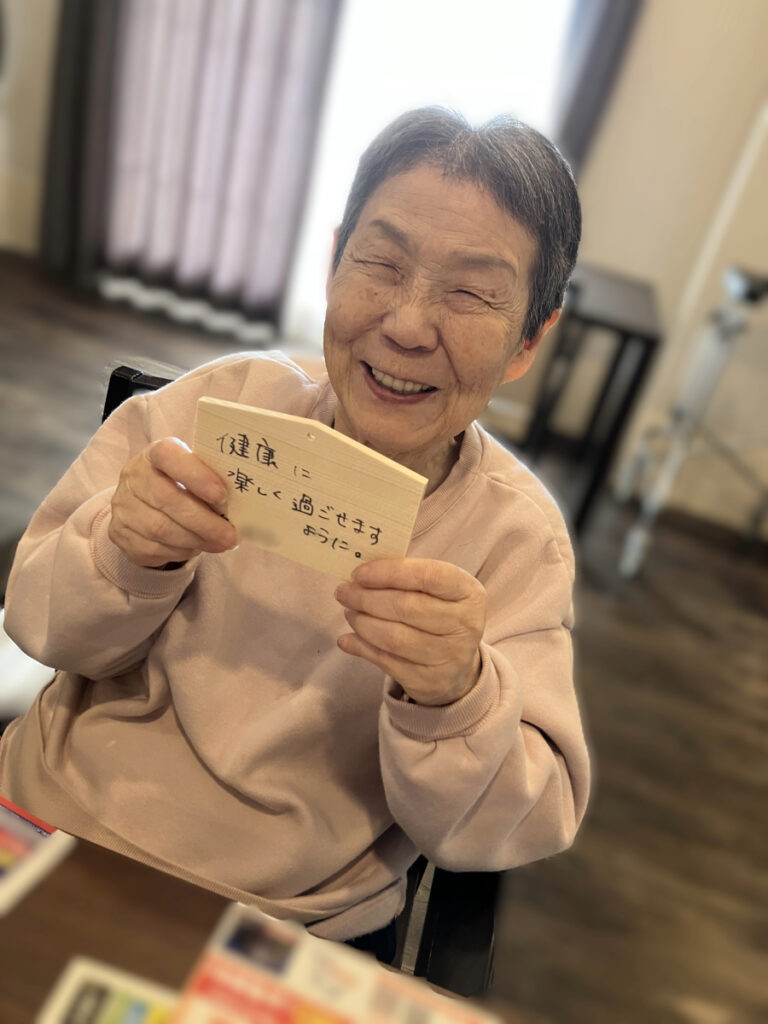 健康に
楽しく過ごせます
ように。